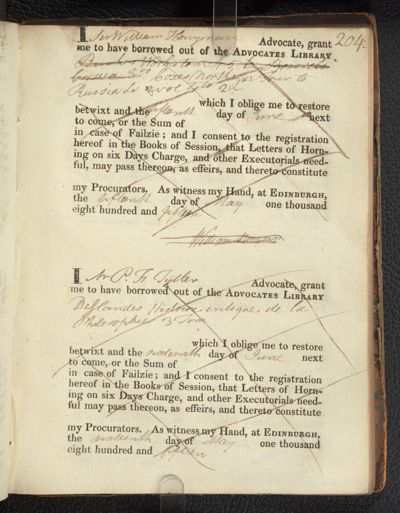 204.
I Sir William Honyman Advocate, grant
me to have borrowed out of the ADVOCATES LIBRARY
Coxes Northern Tour to
Russia &c 2 vol 4to 2d
which I oblige me to restore
betwixt and the fifteenth day of June next
to come, or the Sum of
in case of Failzie; and I consent to the registration
hereof in the Books of Session, that Letters of Horn-
ing on six Days Charge, and other Executorials need-
ful, may pass thereon, as effeirs, and thereto constitute
my Procurators. As witness my Hand, at EDINBURGH,
the fifteenth day of May one thousand
eight hundred and fifteen
William
I Mr P. F. Tytler Advocate, grant
me to have borrowed out of the ADVOCATES LIBRARY
Deslandes Histoire critique de la
Philosophie 3 Tom
which I oblige me to restore
betwixt and the sixteenth day of June next
to come, or the Sum of
in case of Failzie; and I consent to the registration
hereof in the Books of Session, that Letters of Horn-
ing on six Days Charge, and other Executorials need-
ful may pass thereon, as effeirs, and thereto constitute
my Procurators. As witness my Hand, at EDINBURGH,
the sixteenth day of May one thousand
eight hundred and fifteen